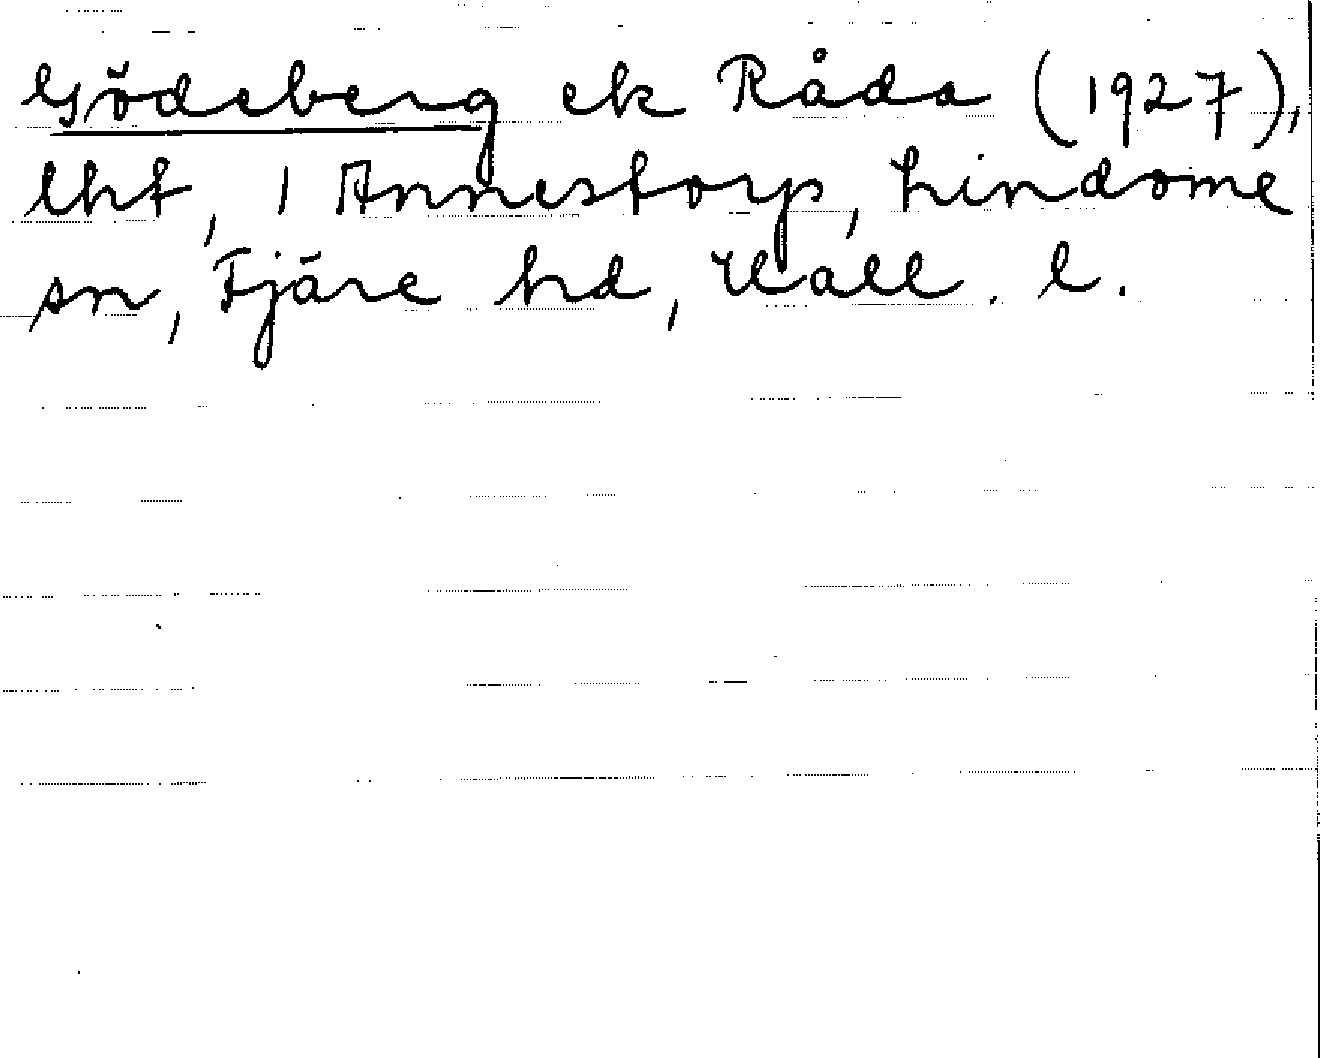 Gödeberg ek Råda (1927),
lht, 1 Annestorp, Lindome
sn, Fjäre hd, Hall. l.